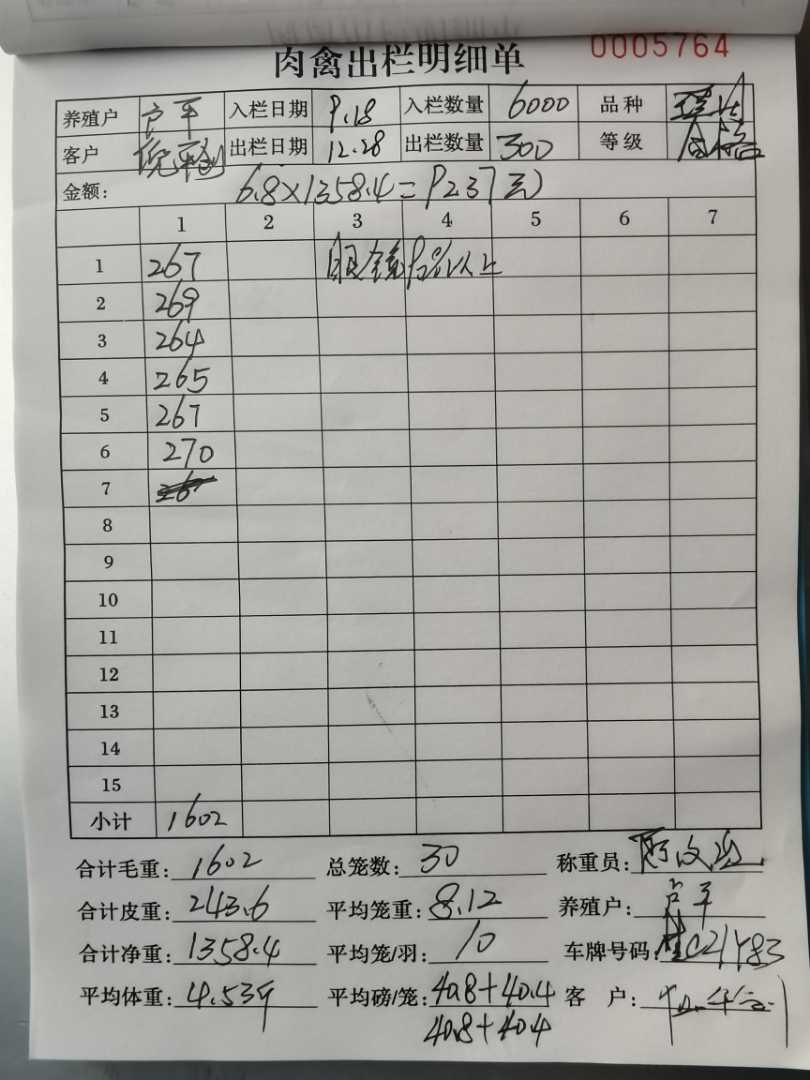 肉禽出栏明细单 0005764
养殖户 卢平 入栏日期 9.18 入栏数量 6000 品种
客户 出栏日期 12.28 出栏数量 300 等级 合格
金额: 6.8×1358.4=9237元
1 2 3 4 5 6 7
1 267 眼镜90%以上
2 269
3 264
4 265
5 267
6 270
7
8
9
10
11
12
13
14
15
小计 1602
合计毛重: 1602 总笼数: 30 称重员:
合计皮重: 243.6 平均笼重: 8.12 养殖户: 卢平
合计净重: 1358.4 平均笼/羽: 10 车牌号码: 桂C21Y83
平均体重: 4.539 平均磅/笼: 40.8+40.4 客 户:
40.8+40.4